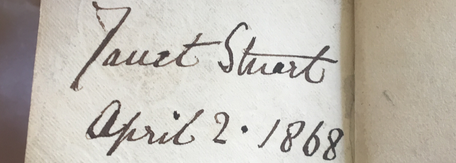 Janet Stuart
April 2 · 1868